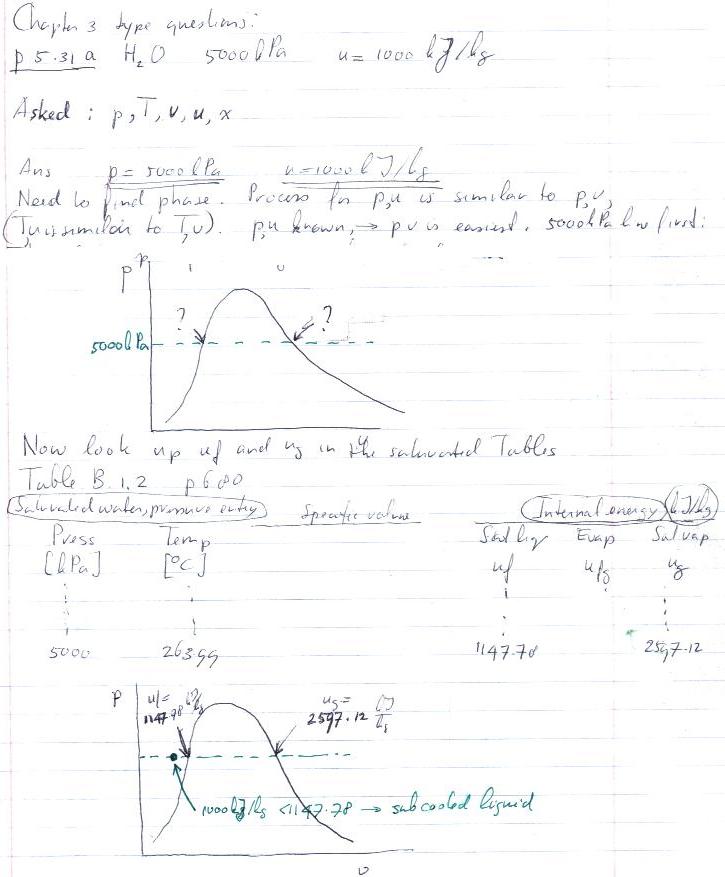 Chapter 3 type questions:
p 5.31 a H₂O 5000 kPa u = 1000 kJ/kg
Asked : p, T, v, u, x
Ans p = 5000 kPa u = 1000 kJ/kg
Need to find phase. Process for p,u is similar to p,v,
(T,u is similar to T,v). p,u known, → p v is easiest. 5000 kPa line first:
P
? ?
5000 kPa
v
Now look up uf and ug in the saturated Tables
Table B.1.2 p 680
Saturated water, pressure entry Specific volume Internal energy (kJ/kg)
Press Temp Sat liq Evap Sat vap
[kPa] [°C] uf ufg ug
5000 263.99 1147.78 2597.12
P uf = kJ/kg ug = kJ/kg
1147.78 2597.12
1000 kJ/kg < 1147.78 → subcooled liquid
v